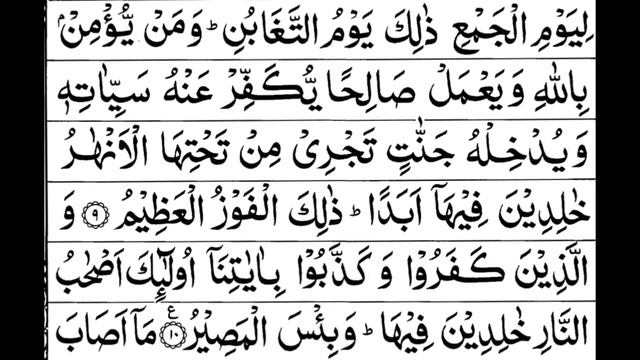 لِيَوْمِ الْجَمْعِ ذٰلِكَ يَوْمُ التَّغَابُنِ ؕ وَمَنْ يُّؤْمِنْۢ
بِاللّٰهِ وَيَعْمَلْ صَالِحًا يُّكَفِّرْ عَنْهُ سَيِّاٰتِهٖ
وَيُدْخِلْهُ جَنّٰتٍ تَجْرِىْ مِنْ تَحْتِهَا الْاَنْهٰرُ
خٰلِدِيْنَ فِيْهَاۤ اَبَدًا ؕ ذٰلِكَ الْفَوْزُ الْعَظِيْمُ ۹ وَ
الَّذِيْنَ كَفَرُوْا وَكَذَّبُوْا بِاٰيٰتِنَاۤ اُولٰٓئِكَ اَصْحٰبُ
النَّارِ خٰلِدِيْنَ فِيْهَا ؕ وَبِئْسَ الْمَصِيْرُ ۱۰ ع مَاۤ اَصَابَ